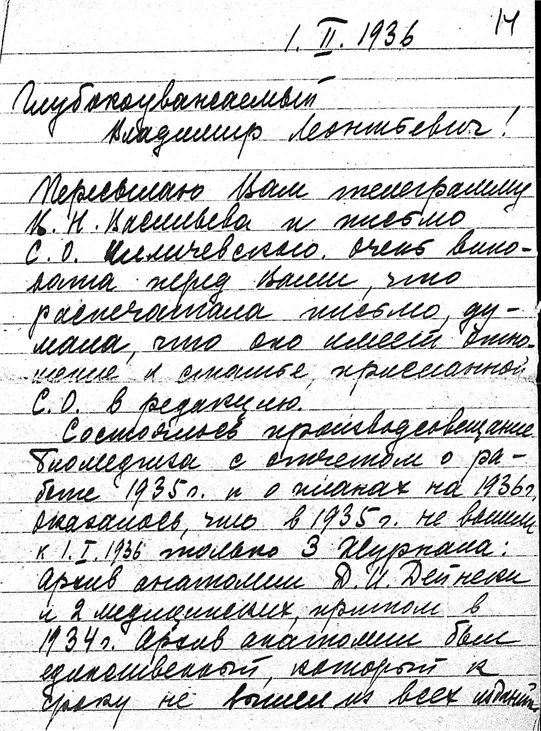 14
1. II. 1936
Глубокоуважаемый
Владимир Леонтьевич!
Пересылаю Вам телеграмму
К. Н. Васильева и письмо
С. О. Иличевского. очень вино-
вата перед Вами, что
распечатала письмо, ду-
мала, что оно имеет отно-
шение к статье, присланной
С. О. в редакцию.
Состоялось производсовещание
Биомедгиза с отчетом о ра-
боте 1935 г. и о планах на 1936 г.
оказалось, что в 1935 г. не вышли
к 1. I. 1936 только 3 журнала:
Архив анатомии Д. И. Дейнеки
и 2 медицинских, притом в
1934 г. Архив анатомии был
единственный, который к
сроку не вышел из всех изданий.